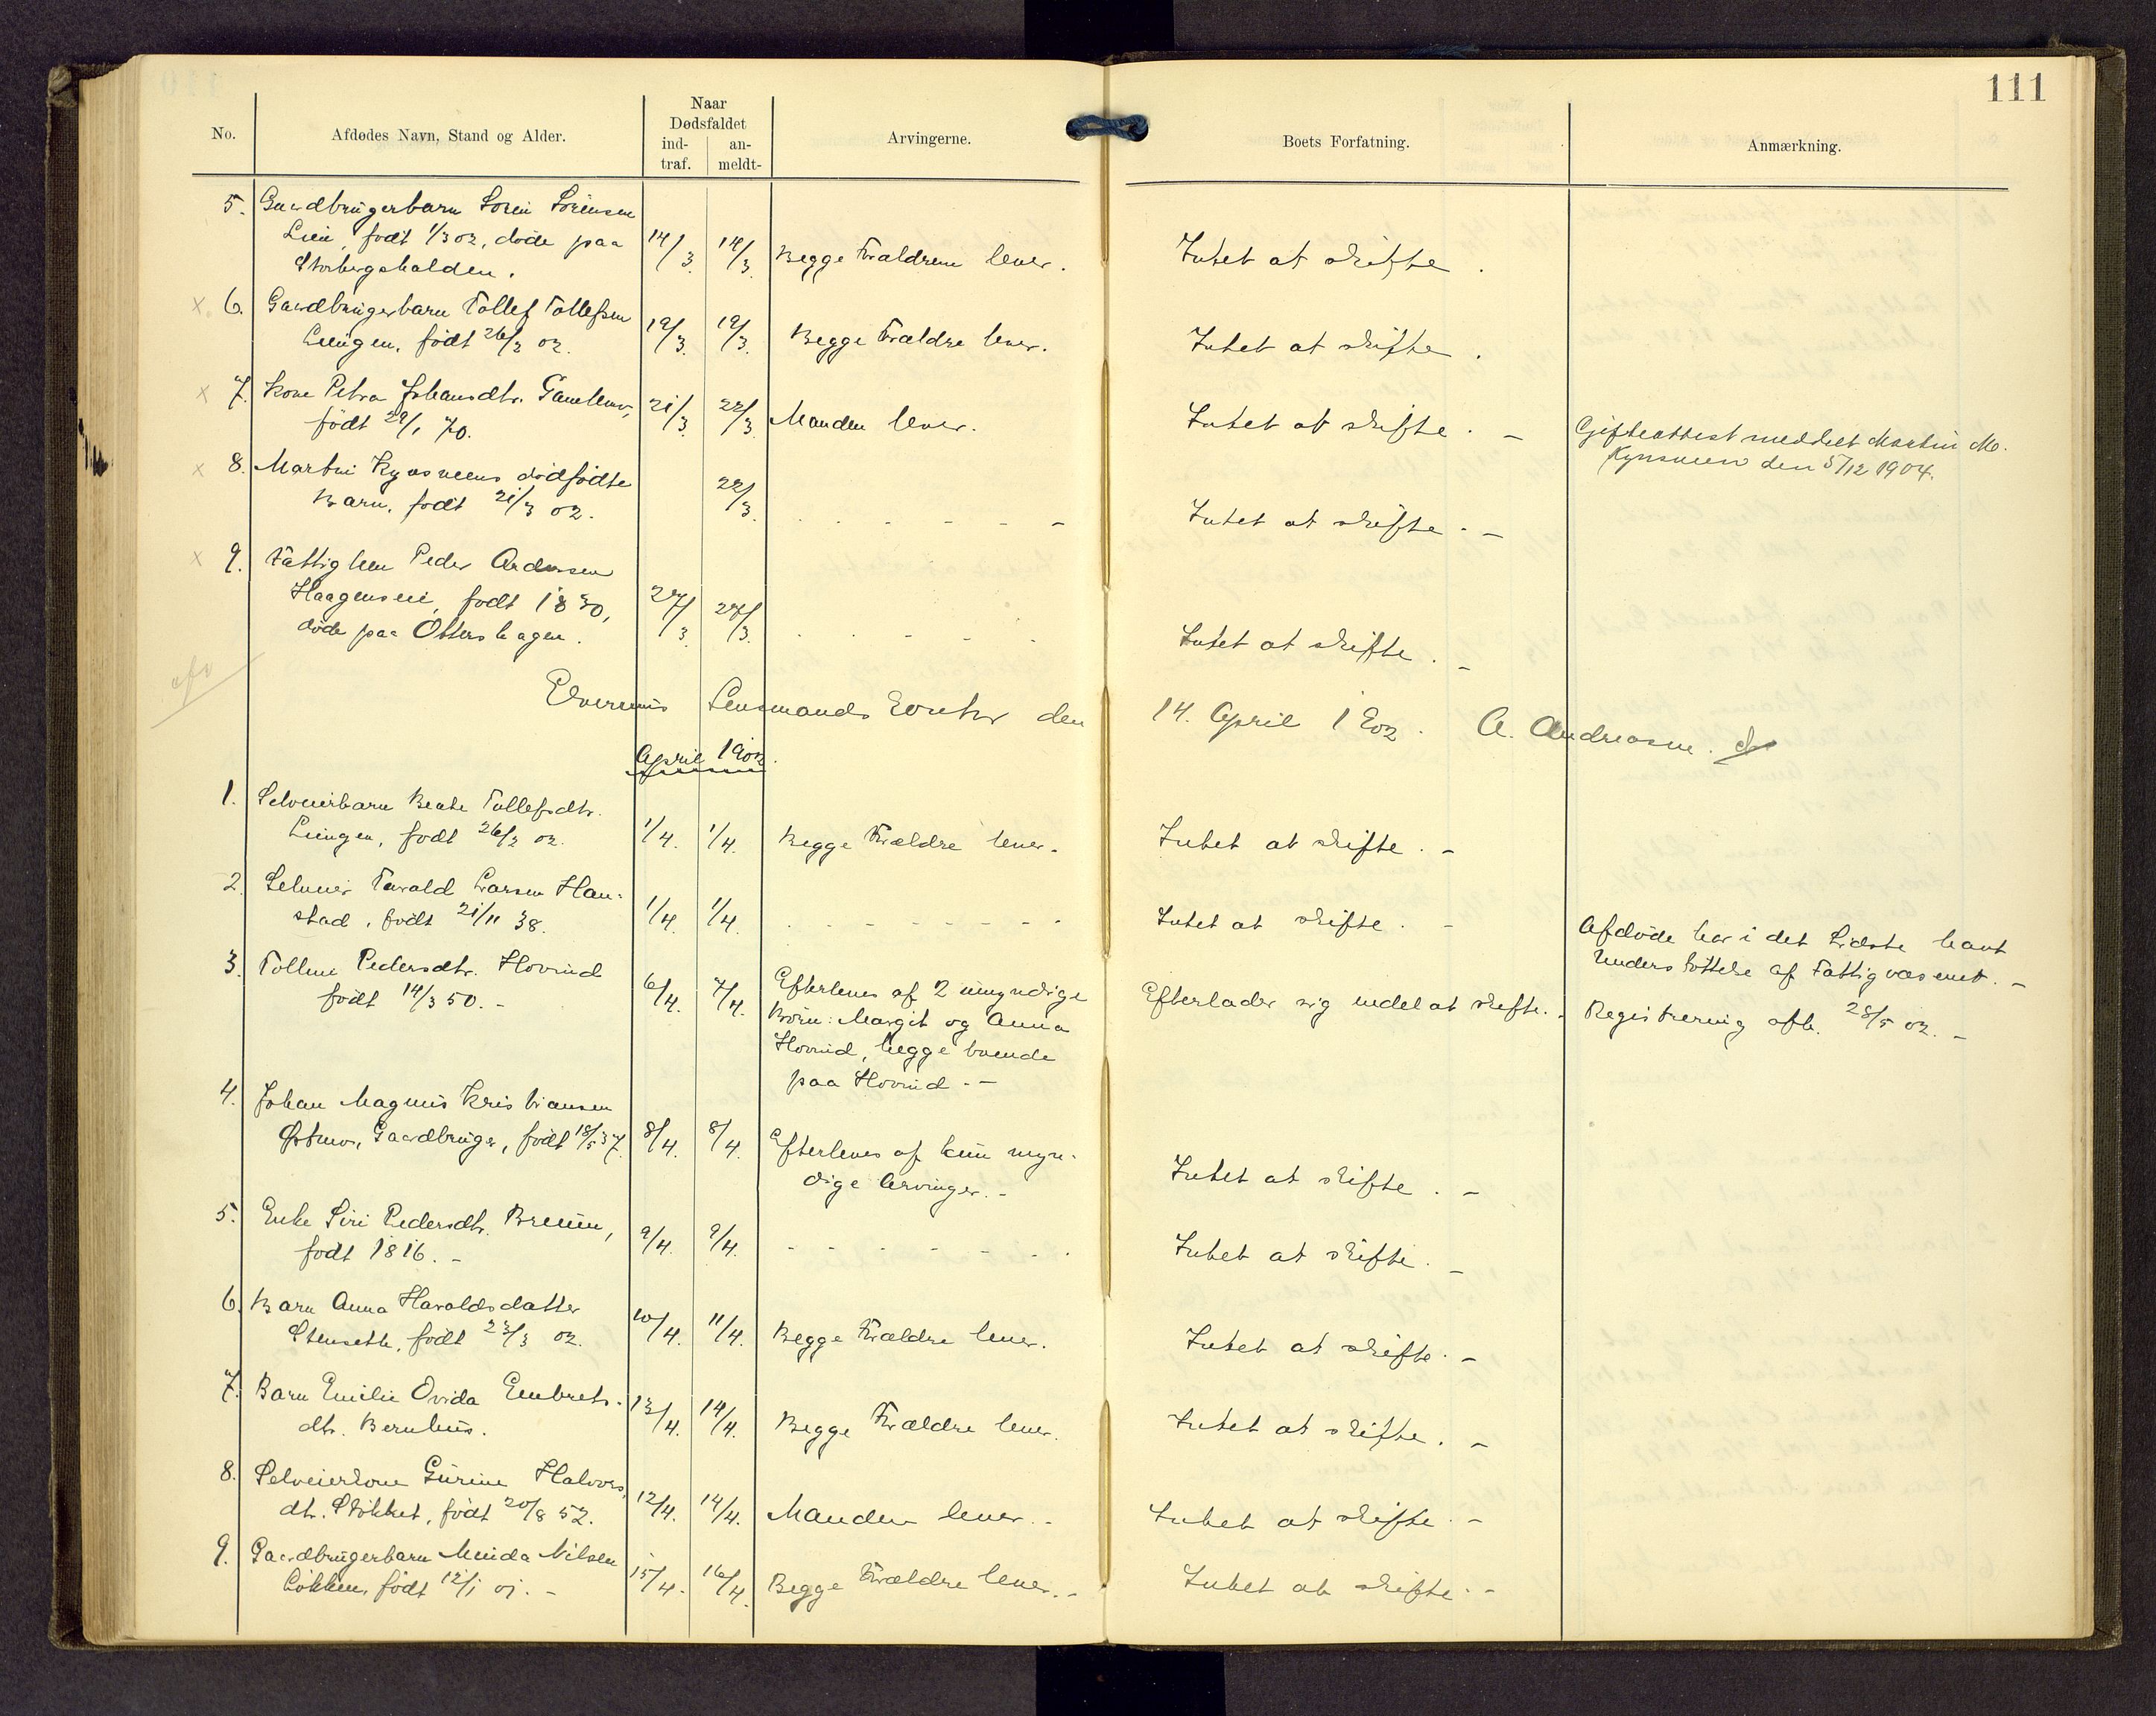 111
No.
Afdødes Navn, Stand og Alder.
Naar Dødsfaldet
ind-traf.
an-meldt-
Arvingerne.
Boets Forfatning.
Anmærkning.
5. Gaardbrugerbarn Soren Sørensen
Lien, født 1/3 02, døde paa
Storbergshalden. 14/3. 14/3. Begge Forældrene lever. Intet at skifte.
x. 6. Gaardbrugerbarn Tollef Tollefsen
Lüngen, født 26/2 02. 19/3. 19/3. Begge Forældre lever. Intet at skifte.
x 7. Kone Petra Johansdtr.
født 29/1 70. 21/3. 22/3. Manden lever. Intet at skifte. - Gifteattest meddelt Martin M.
den 5/12 1904.
x 8. Martin dødfødte
Barn, født 21/3 02. 22/3. - - - - Intet at skifte. -
x 9. Fattiglem Peder Andersen
Haagenseie, født 1830,
døde paa Ottershagen. 27/3 27/3. - - - Intet at skifte. -
Elverums Lensmands Kontor den 14. April 1902. A. Andreasen.
April 1902.
1. Selveierbarn Beate Tollefsdtr.
Lüngen, født 26/2 02. 1/4. 1/4. Begge Forældre lever. Intet at skifte. -
2. Tarald Larsen Han-
stad, født 21/11 38. 1/4. 1/4. - - - - Intet at skifte. - Afdøde har i det Sidste havt
Understøttelse af Fattigvæsenet. -
3. Tolline Pedersdtr. Hovrud
født 14/3 50. - 6/4. 7/4. Efterleves af 2 umyndige
Børn: Margit og Anna
Hovrud, begge boende
paa Hovrud. - Efterlader sig endel at skifte. - Registrering afh. 28/5 02. -
4. Johan Magnus Kristiansen
Østmo, Gaardbruger, født 18/5 37. 8/4. 8/4. Efterleves af kun myn-
dige Arvinger. - Intet at skifte. -
5. Enke Siri Pedersdtr.
født 1816. - 9/4. 9/4. - - - - Intet at skifte. -
6. Barn Anna Haraldsdatter
Stenseth, født 23/3 02. 10/4. 11/4. Begge Forældre lever. Intet at skifte. -
7. Barn Emilie Ovida Embrets-
dtr. Bernhus. 13/4. 14/4. Begge Forældre lever. Intet at skifte. -
8. Selveierkone Gurine Halvors
dtr. Stokket, født 20/8 52. 12/4. 14/4. Manden lever. - Intet at skifte. -
9. Gaardbrugerbarn Minda Nilsen
Løkken, født 12/1 01. - 15/4. 16/4. Begge Forældre lever. - Intet at skifte. -